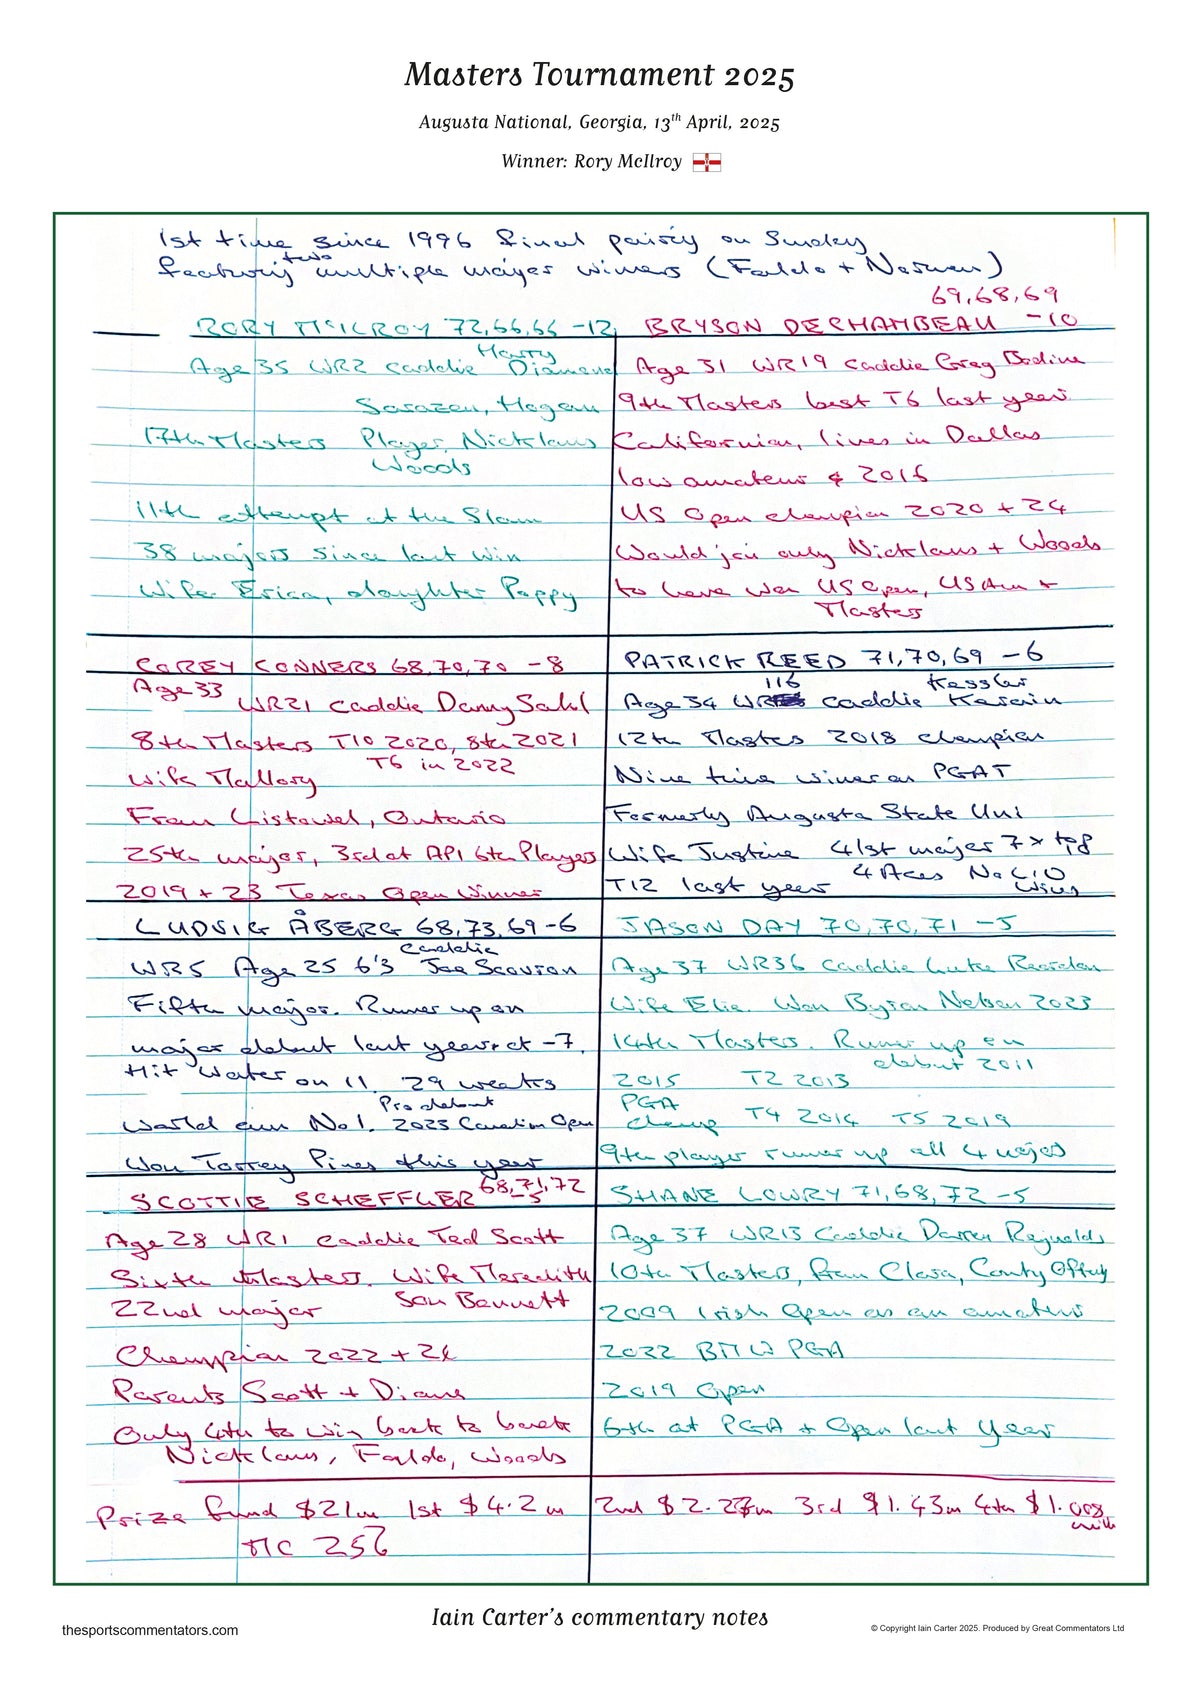 Masters Tournament 2025
Augusta National, Georgia, 13th April, 2025
Winner: Rory McIlroy
1st time since 1996 final pairing on Sunday
featuring two multiple major winners (Faldo + Norman)
RORY McILROY 72,66,66 -12
Age 35 WR2 caddie Harry Diamond
Sarazen, Hogan
17th Masters Player, Nicklaus
Woods
11th attempt at the Slam
38 majors since last win
Wife Erica, daughter Poppy
69,68,69
BRYSON DECHAMBEAU -10
Age 31 WR19 caddie Greg Bodine
9th Masters best T6 last year
Californian, lives in Dallas
low amateur 2016
US Open champion 2020 + 24
Would join only Nicklaus + Woods
to have won US Open, US Am +
Masters
COREY CONNERS 68,70,70 -8
Age 33 WR21 caddie Danny Sahl
8th Masters T10 2020, 8th 2021
T6 in 2022
Wife Mallory
From Listowel, Ontario
25th major, 3rd at API 6th Players
2019 + 23 Texas Open Winner
PATRICK REED 71,70,69 -6
116 Kessler
Age 34 WR caddie Karain
12th Masters 2018 champion
Nine time winner on PGAT
Formerly Augusta State Uni
Wife Justine 41st major 7 x top
T12 last year 4 Aces No LIV
wins
LUDVIG ÅBERG 68,73,69 -6
caddie
WR5 Age 25 6'3 Joe Scovron
Fifth major. Runner up on
major debut last year at -7.
Hit water on 11. 29 weeks
Pro debut
World am No1. 2023 Canadian Open
Won Torrey Pines this year
JASON DAY 70,70,71 -5
Age 37 WR36 caddie Luke Reardon
Wife Ellie. Won Byron Nelson 2023
14th Masters. Runner up on
debut 2011
2015 T2 2013
PGA
champ T4 2014 T5 2019
9th player runner up all 4 majors
SCOTTIE SCHEFFLER 68,71,72
-5
Age 28 WR1 caddie Ted Scott
Sixth Masters. Wife Meredith
22nd major Son Bennett
Champion 2022 + 24
Parents Scott + Diane
Only 4th to win back to back
Nicklaus, Faldo, Woods
SHANE LOWRY 71,68,72 -5
Age 37 WR13 Caddie Darren Reynolds
10th Masters, from Clara, County Offaly
2009 Irish Open as an amateur
2022 BMW PGA
2019 Open
6th at PGA + Open last year
Prize fund $21m 1st $4.2m 2nd $2.27m 3rd $1.43m 4th $1.008
mill
MC 256
Iain Carter's commentary notes
thesportscommentators.com
© Copyright Iain Carter 2025. Produced by Great Commentators Ltd